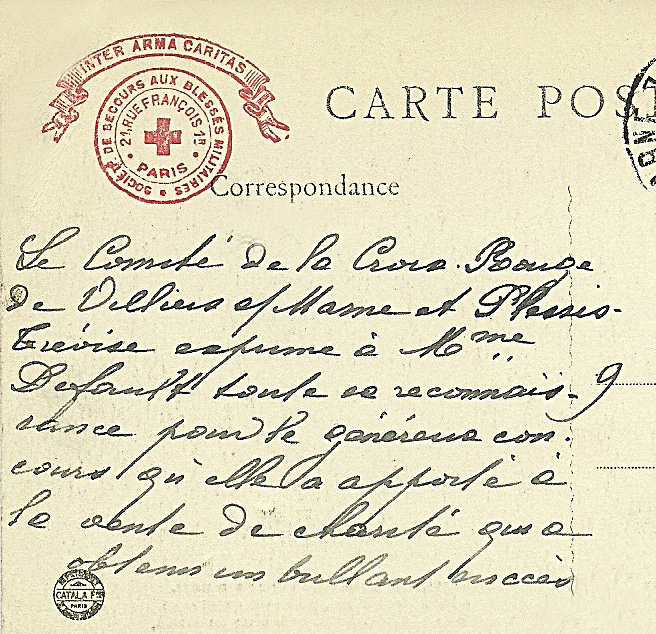 INTER ARMA CARITAS
SOCIÉTÉ DE SECOURS AUX BLESSÉS MILITAIRES
21, RUE FRANÇOIS 1ER
PARIS
CARTE POST
Correspondance
Le Comité de la Croix-Rouge
de Villiers s/ Marne et Plessis-
Trévise exprime à Mme
Default toute sa reconnais-
sance pour le généreux con-
cours qu'elle a apporté à
la vente de charité qui a
obtenu un brillant succès
CATALA Fres
PARIS